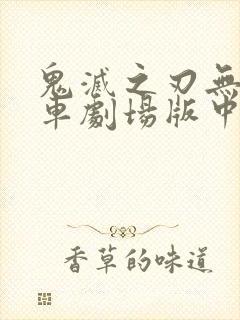 鬼滅之刃無
車劇場版中
香草的味道